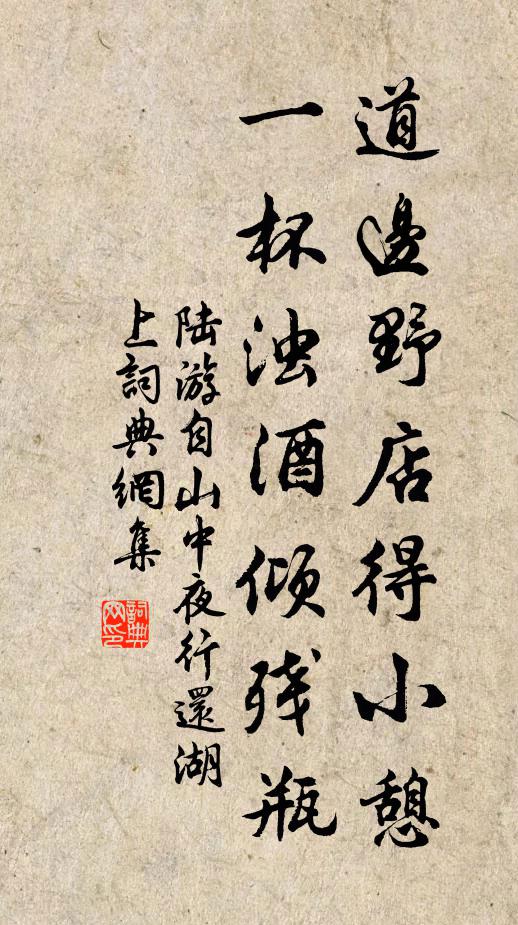 道邊野店得小憩
一杯浊酒倾残瓶
陆游自山中夜行還湖
上詞典網集
詞典
网印